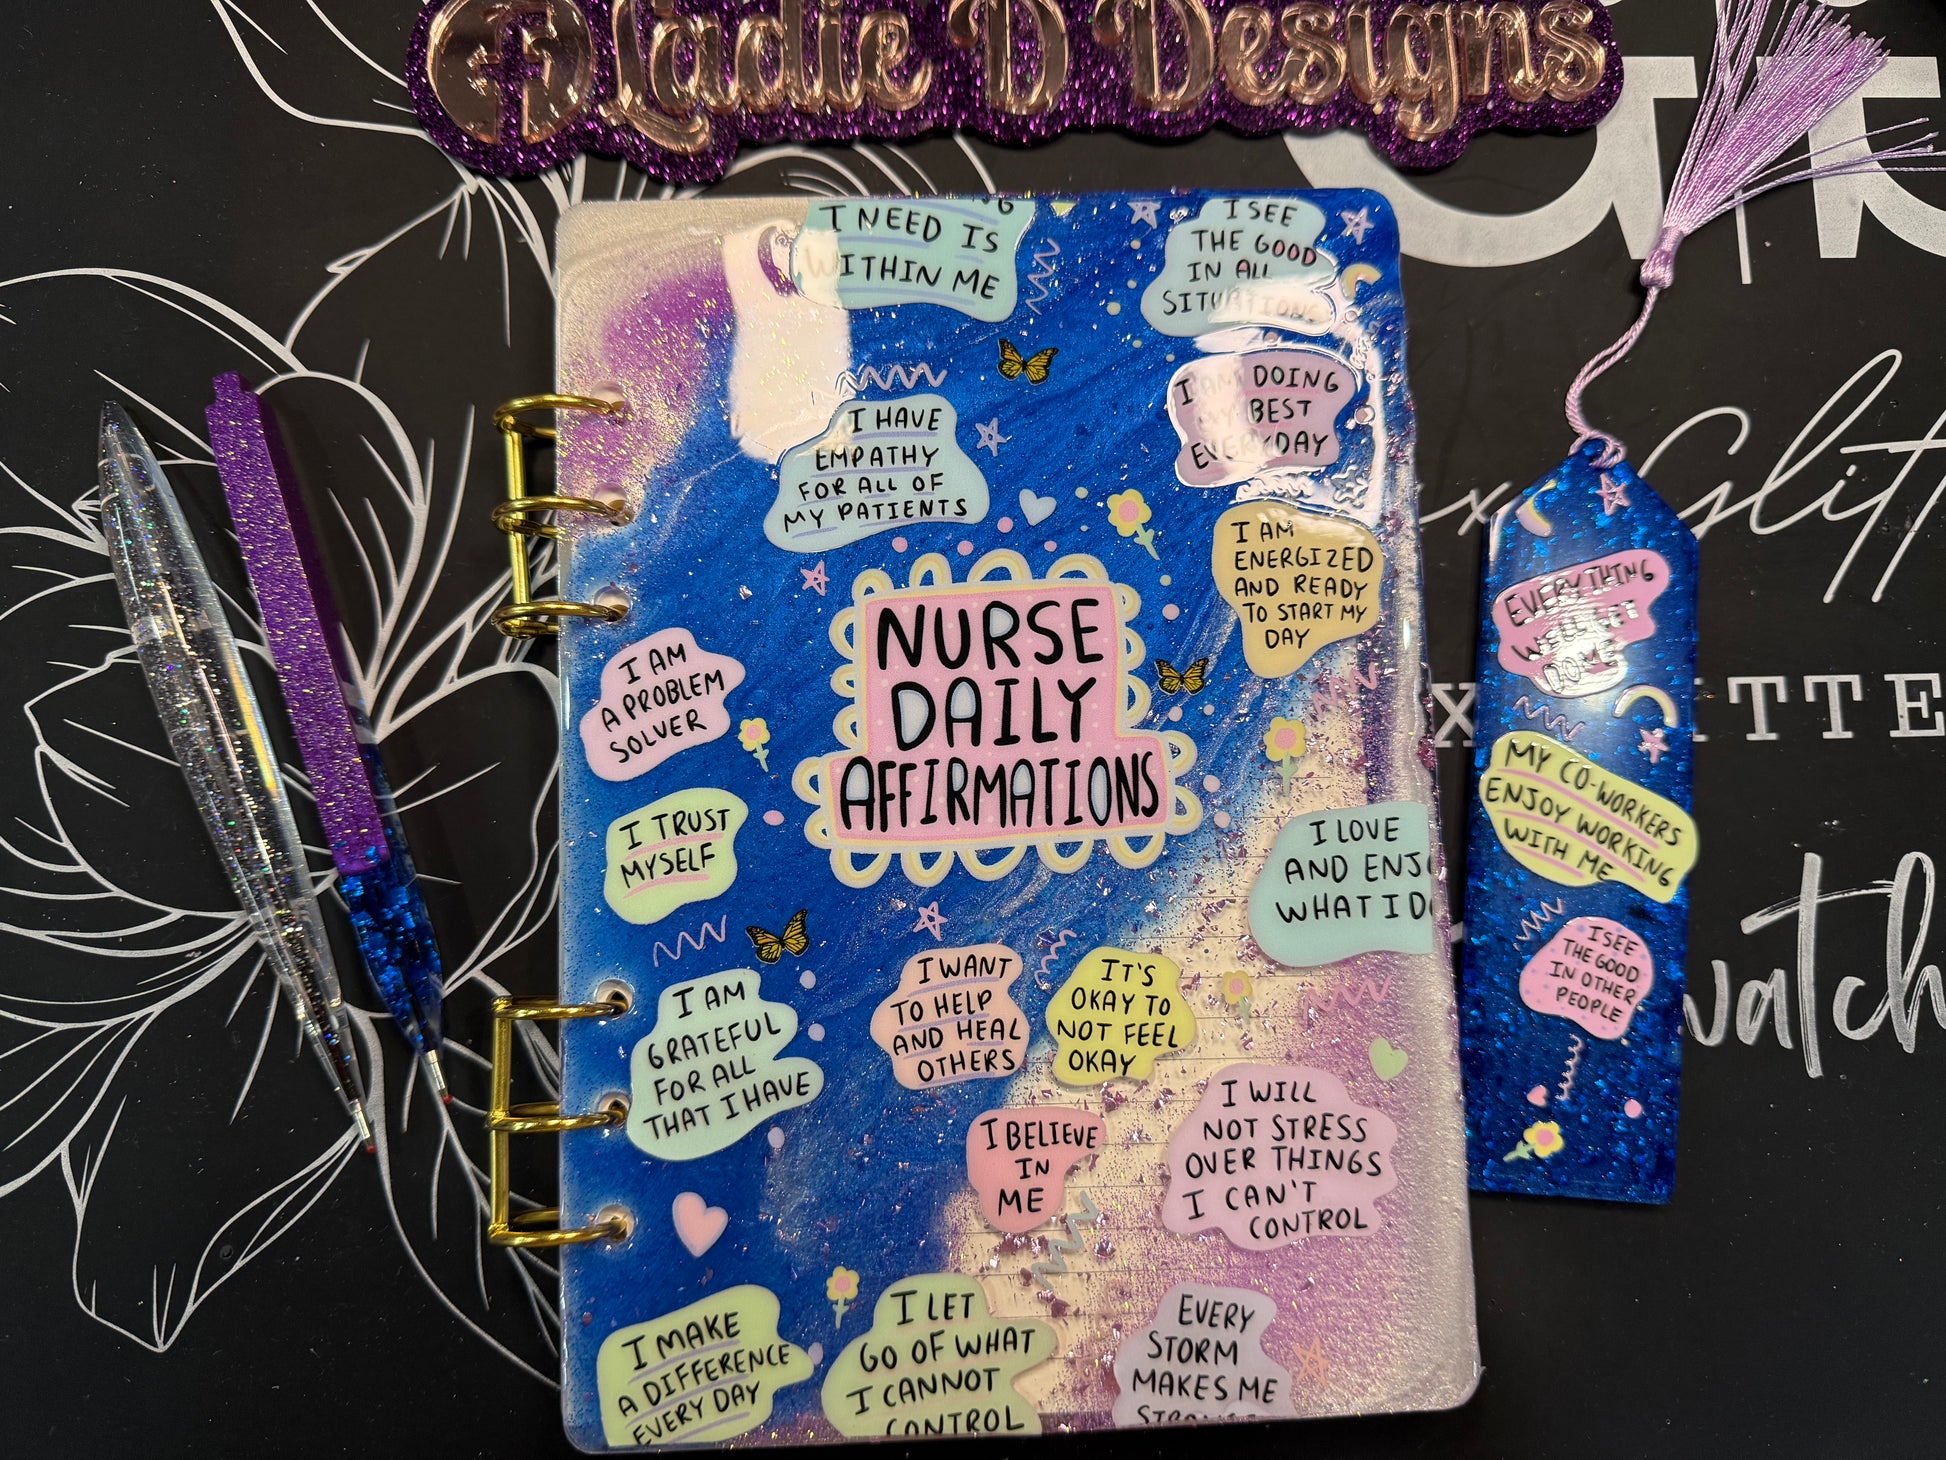 Ladie D Designs
I NEED IS
WITHIN ME
I SEE
THE GOOD
IN ALL
SITUATIONS
I AM DOING
MY BEST
EVERYDAY
I HAVE
EMPATHY
FOR ALL OF
MY PATIENTS
I AM
ENERGIZED
AND READY
TO START MY
DAY
NURSE
DAILY
AFFIRMATIONS
I AM
A PROBLEM
SOLVER
I TRUST
MYSELF
I LOVE
AND ENJ
WHAT I DO
I AM
GRATEFUL
FOR ALL
THAT I HAVE
I WANT
TO HELP
AND HEAL
OTHERS
IT'S
OKAY TO
NOT FEEL
OKAY
I BELIEVE
IN
ME
I WILL
NOT STRESS
OVER THINGS
I CAN'T
CONTROL
I MAKE
A DIFFERENCE
EVERY DAY
I LET
GO OF WHAT
I CANNOT
CONTROL
EVERY
STORM
MAKES ME
EVERYTHING
WILL GET
DONE
MY CO-WORKERS
ENJOY WORKING
WITH ME
I SEE
THE GOOD
IN OTHER
PEOPLE
x Glitt
X ITTE
watch